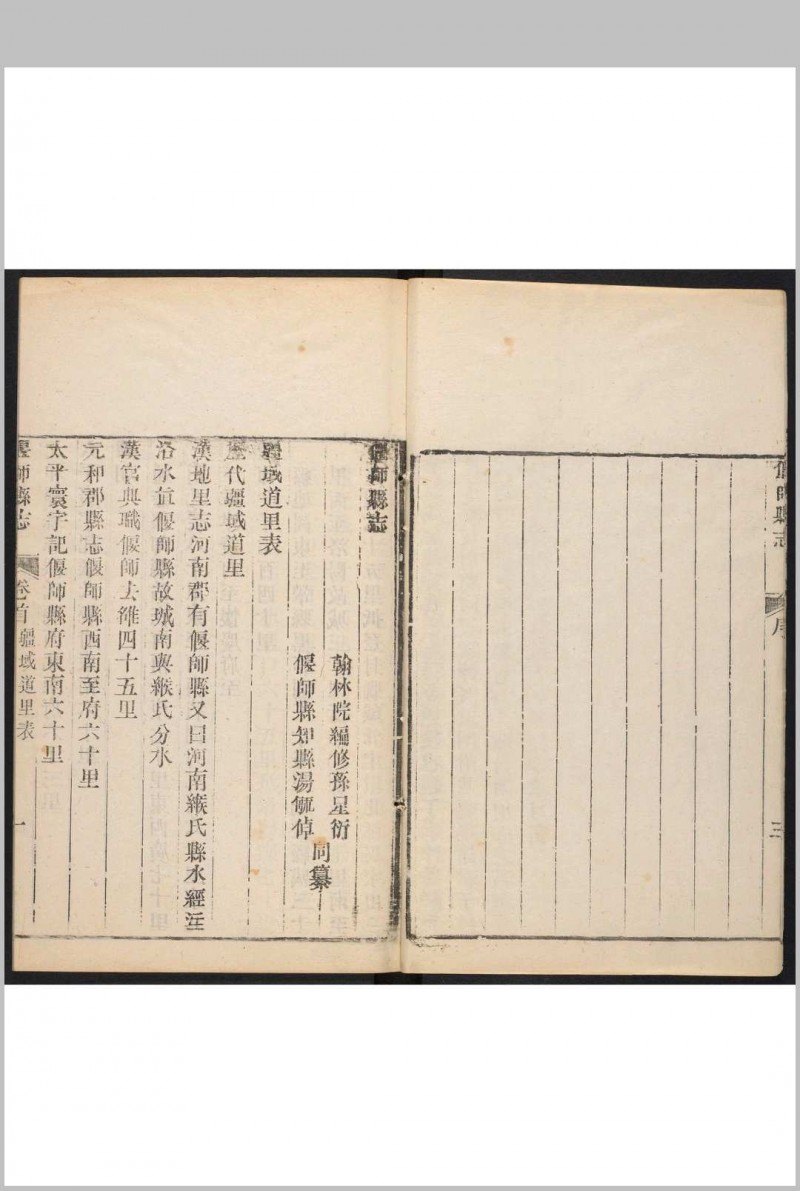 偃師縣志
序
三
偃師縣志
翰林院編修孫星衍
偃師縣知縣湯毓倬
同纂
疆域道里表
歷代疆域道里
漢地里志河南郡有偃師縣又曰河南緱氏縣水經注
洛水逕偃師縣故城南與緱氏分水
漢官典職偃師去雒四十五里
元和郡縣志偃師縣西南至府六十里
太平寰宇記偃師縣府東南六十里
偃師縣志
卷首疆域道里表
一